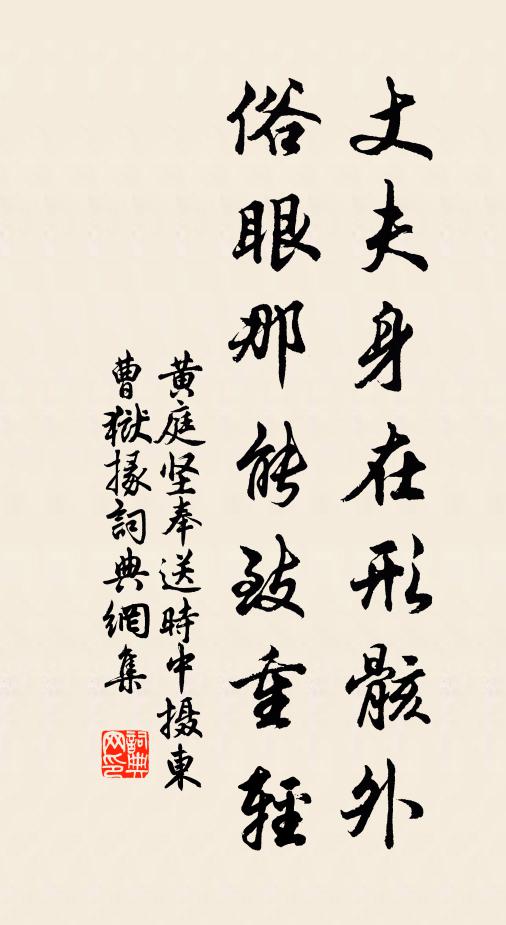 丈夫身在形骸外
俗眼那能致重輕
黄庭坚奉送時中摄東
曹獄掾詞典網集
詞典網印